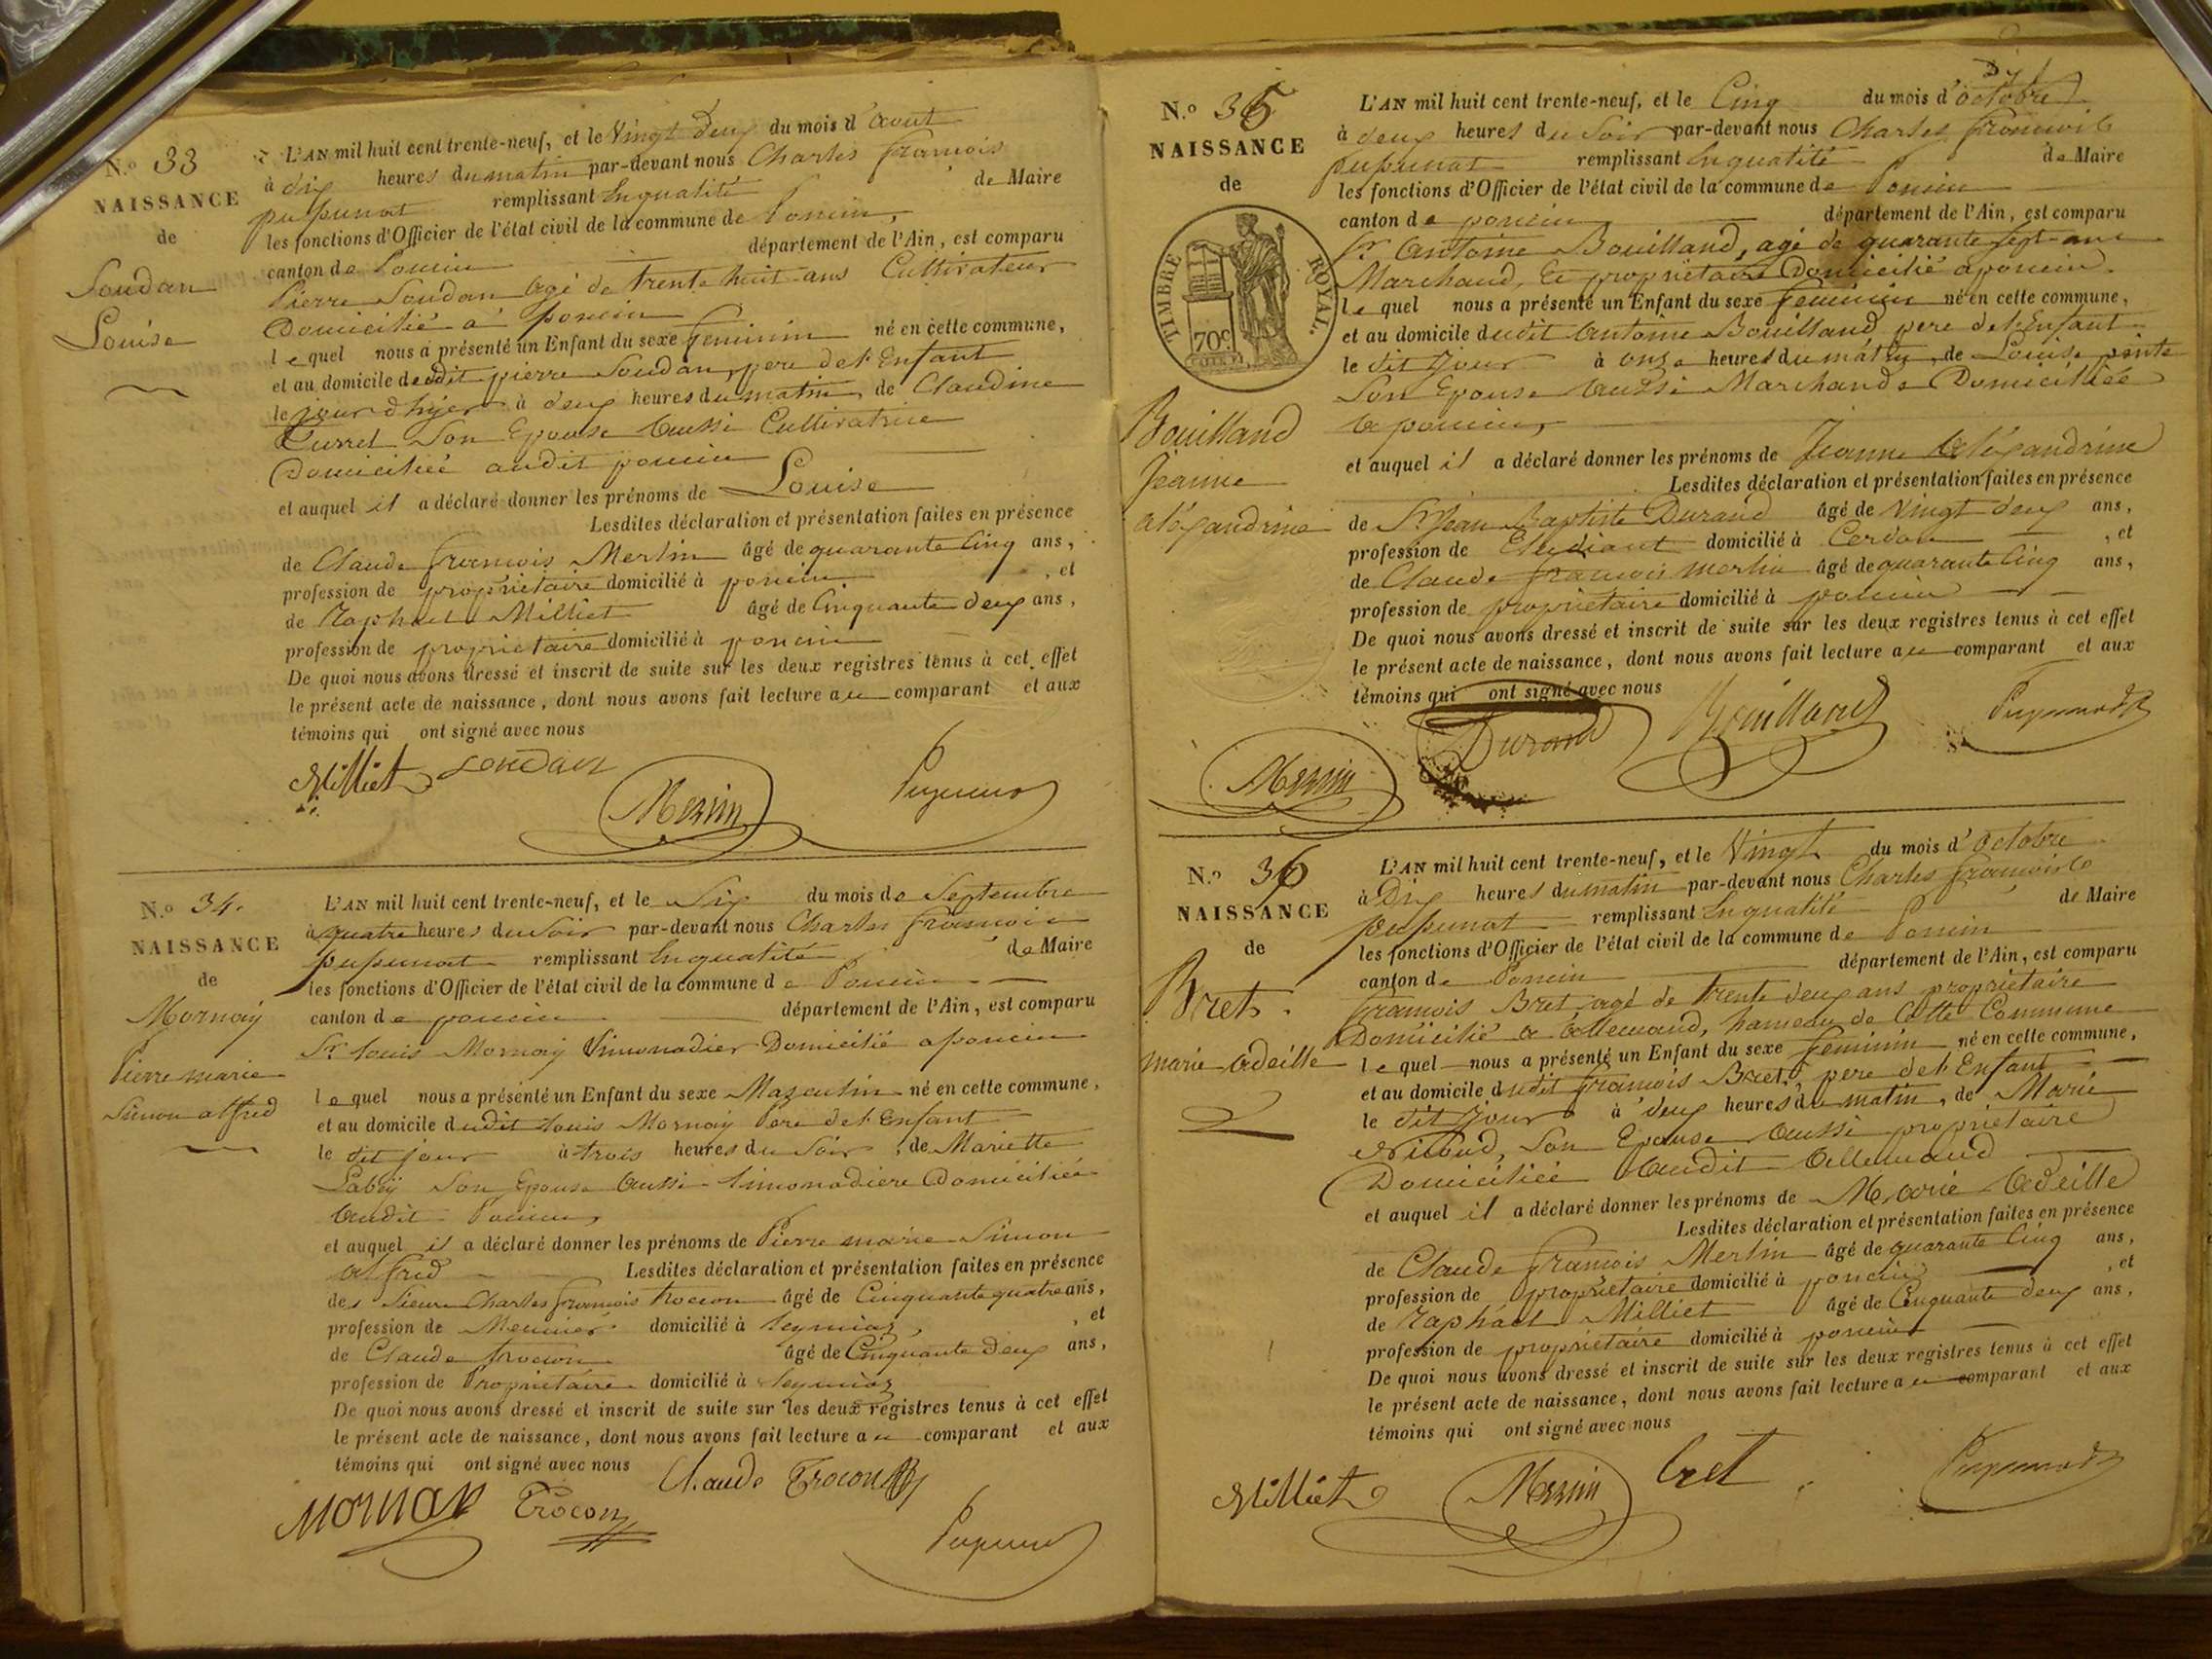 N.o 33
NAISSANCE
de
Soudan
Louise
L'AN mil huit cent trente-neuf, et le Vingt deux du mois d'Aout
à dix heures du matin par-devant nous Charles françois
pupunat remplissant En qualité de Maire
les fonctions d'Officier de l'état civil de la commune de Poncin,
canton de Poncin département de l'Ain, est comparu
Pierre Soudan agé de trente huit ans Cultivateur
Domicilié a poncin
lequel nous a présenté un Enfant du sexe feminin né en cette commune,
et au domicile dudit pierre Soudan, pere de l'Enfant
le jour d'hyer à deux heures du matin, de Claudine
Son Epouse Aussi Cultivatrice
Domiciliée audit poncin
et auquel il a déclaré donner les prénoms de Louise
Lesdites déclaration et présentation faites en présence
de Claude françois Merlin âgé de quarante Cinq ans,
profession de propriétaire domicilié à poncin, et
de Raphael Milliet âgé de Cinquante deux ans,
profession de propriétaire domicilié à poncin
De quoi nous avons dressé et inscrit de suite sur les deux registres tenus à cet effet
le présent acte de naissance, dont nous avons fait lecture au comparant et aux
témoins qui ont signé avec nous
Milliet Soudan
Merlin
N.o 34.
NAISSANCE
de
Mornay
Pierre marie
Simon alfred
L'AN mil huit cent trente-neuf, et le Six du mois de Septembre
à quatre heures du Soir par-devant nous Charles françois
pupunat remplissant En qualité de Maire
les fonctions d'Officier de l'état civil de la commune de Poncin
canton de poncin département de l'Ain, est comparu
Sr. Louis Mornay Limonadier Domicilié a poncin
lequel nous a présenté un Enfant du sexe Masculin né en cette commune,
et au domicile dudit Louis Mornay Pere de l'Enfant
le dit jour à trois heures du Soir, de Mariette
Son Epouse Aussi limonadiere Domiciliée
Audit Poncin,
et auquel il a déclaré donner les prénoms de Pierre marie Simon
alfred Lesdites déclaration et présentation faites en présence
des Sieurs Charles françois trocon âgé de Cinquante quatre ans,
profession de Meunier domicilié à leymiaz, et
de Claude trocon âgé de Cinquante Deux ans,
profession de Propriétaire domicilié à leymiaz
De quoi nous avons dressé et inscrit de suite sur les deux registres tenus à cet effet
le présent acte de naissance, dont nous avons fait lecture au comparant et aux
témoins qui ont signé avec nous
Claude Trocon
Mornay Trocon
N.o 35
NAISSANCE
de
TIMBRE ROYAL.
70c
Bouilland
Jeanne
aléxandrine
L'AN mil huit cent trente-neuf, et le Cinq du mois d'Octobre
à deux heures du Soir par-devant nous Charles françois
pupunat remplissant En qualité de Maire
les fonctions d'Officier de l'état civil de la commune de Poncin
canton de poncin département de l'Ain, est comparu
Sr. Antoine Bouilland, agé de quarante Sept ans
Marchand, Et propriétaire Domicilié a poncin
lequel nous a présenté un Enfant du sexe feminin né en cette commune,
et au domicile dudit Antoine Bouilland, pere de l'Enfant
le dit Jour à onze heures du matin, de Louise
Son Epouse Aussi Marchande Domiciliée
a poncin,
et auquel il a déclaré donner les prénoms de Jeanne Aléxandrine
Lesdites déclaration et présentation faites en présence
de Sr. Jean Baptiste Durand âgé de Vingt deux ans,
profession de Etudiant domicilié à Cerdon, et
de Claude françois merlin âgé de quarante Cinq ans,
profession de propriétaire domicilié à poncin
De quoi nous avons dressé et inscrit de suite sur les deux registres tenus à cet effet
le présent acte de naissance, dont nous avons fait lecture au comparant et aux
témoins qui ont signé avec nous
Durand Bouilland
Merlin
N.o 36
NAISSANCE
de
Bret.
marie adeille
L'AN mil huit cent trente-neuf, et le Vingt du mois d'Octobre
à Dix heures du matin par-devant nous Charles françois
pupunat remplissant En qualité de Maire
les fonctions d'Officier de l'état civil de la commune de Poncin
canton de Poncin département de l'Ain, est comparu
françois Bret agé de trente deux ans propriétaire
Domicilié a Allemand, hameau de Cette Commune
lequel nous a présenté un Enfant du sexe feminin né en cette commune,
et au domicile dudit françois Bret, pere de l'Enfant
le dit Jour à deux heures du matin, de Marie
Son Epouse Aussi propriétaire
Domiciliée Audit Allemand
et auquel il a déclaré donner les prénoms de Marie Adeille
Lesdites déclaration et présentation faites en présence
de Claude françois Merlin âgé de quarante Cinq ans,
profession de propriétaire domicilié à poncin, et
de Raphael Milliet âgé de Cinquante deux ans,
profession de propriétaire domicilié à poncin
De quoi nous avons dressé et inscrit de suite sur les deux registres tenus à cet effet
le présent acte de naissance, dont nous avons fait lecture au comparant et aux
témoins qui ont signé avec nous
Milliet Merlin Bret